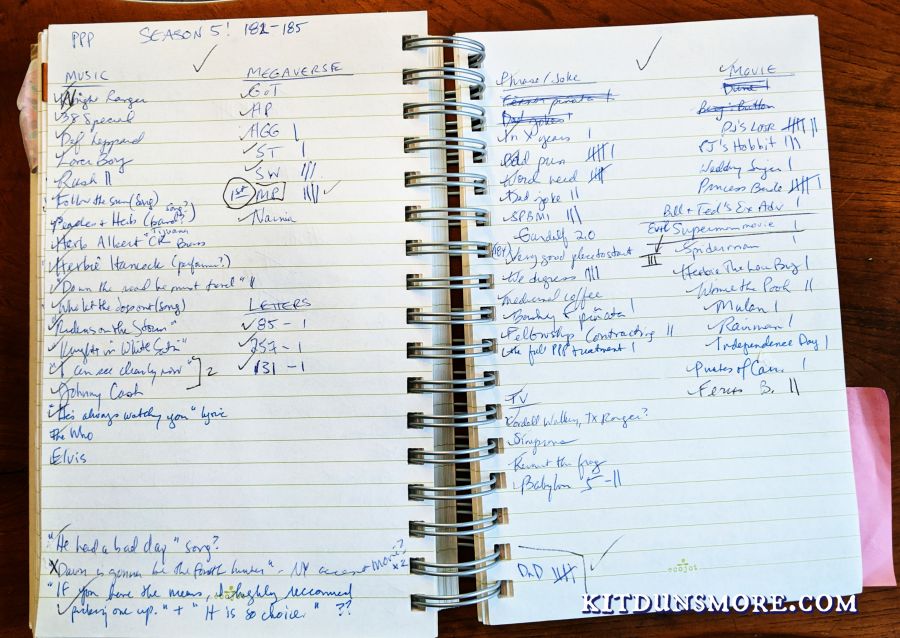 PPP SEASON 5! 182-185
MUSIC
Night Ranger
38 Special
Def Leppard
Lover Boy
Rush II
Follow the sun (song)
Peaches + Herb (band?) song?
Herb Albert CR Tijuana Brass
Herbie Hancock (performer?)
"Down the road he must travel" II
Who let the dogs out (song)
"Riders on the Storm"
"Knights in White Satin"
"I can see clearly now" 2
Johnny Cash
"He's always watching you" lyric
The Who
Elvis
"He had a bad day" song?
X Dawn is gonna be the fourth hunter" - NY accent movie? x2
"If you have the means, I highly reccomend
picking one up." + "It is so choice" ??
MEGAVERSE
GoT
HP
HGG I
ST I
SW III
1st MP IIII
Narnia
LETTERS
85 - 1
257 - 1
131 - 1
Phrase/Joke
Terror piñata I
Dad jokes I
In X years I
Bad puns
Word nerd
Dad joke II
SPBMI III
Gandalf 2.0
184 Very good place to start
We digress
medicinal coffee
Bombay piñata I
Fellowship Contracting II
the full PPP treatment I
TV
Cordell Walker, TX Ranger?
Simpsons
Kermit the frog
Babylon 5 - II
DnD
MOVIE
Dune I
Benj. Button
PJ's LOTR
PJ's Hobbit III
Wedding Singer I
Princess Bride
Bill + Ted's Ex Adv I
Evil Superman movie I
Spiderman I
Herbie The Love Bug I
Winnie the Pooh II
Mulan I
Rainman I
Independence Day I
Pirates of Cari. I
Ferris B. II
ecojot
KITDUNSMORE.COM